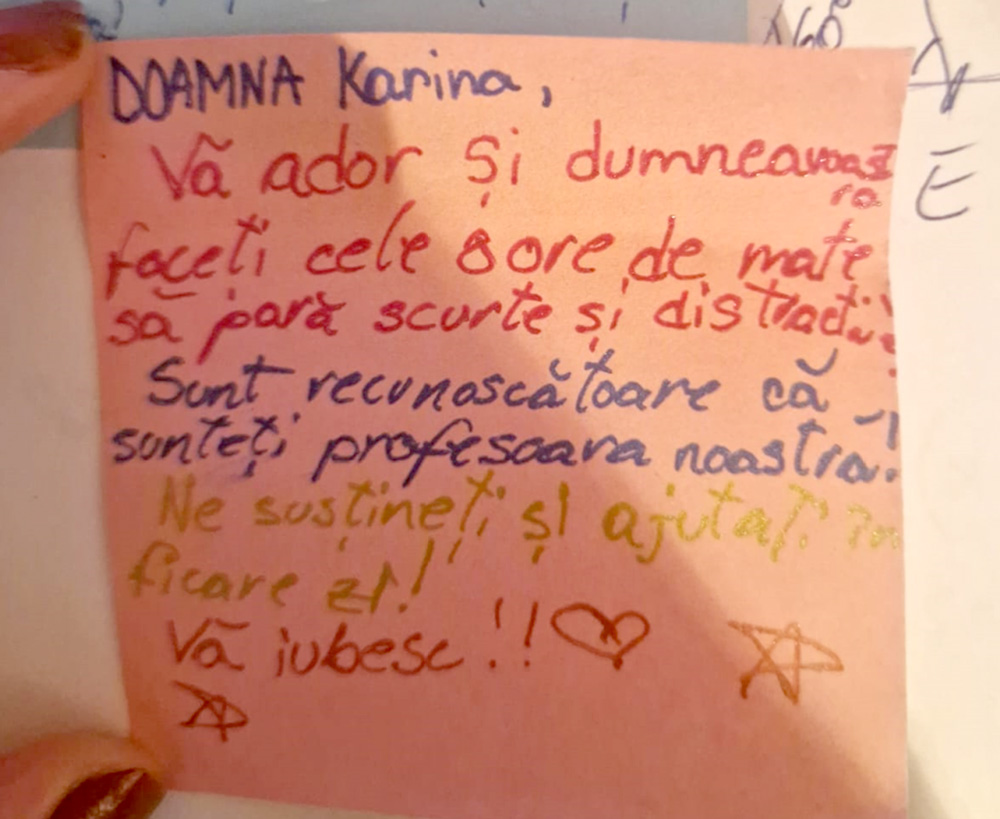 DOAMNA Karina,
Vă ador și dumneavoast
ra
faceți cele 8 ore de mate
să pară scurte și distractive!
Sunt recunoscătoare că
sunteți profesoara noastră!
Ne susțineți și ajutați în
ficare zi!
Vă iubesc !!
160°
E